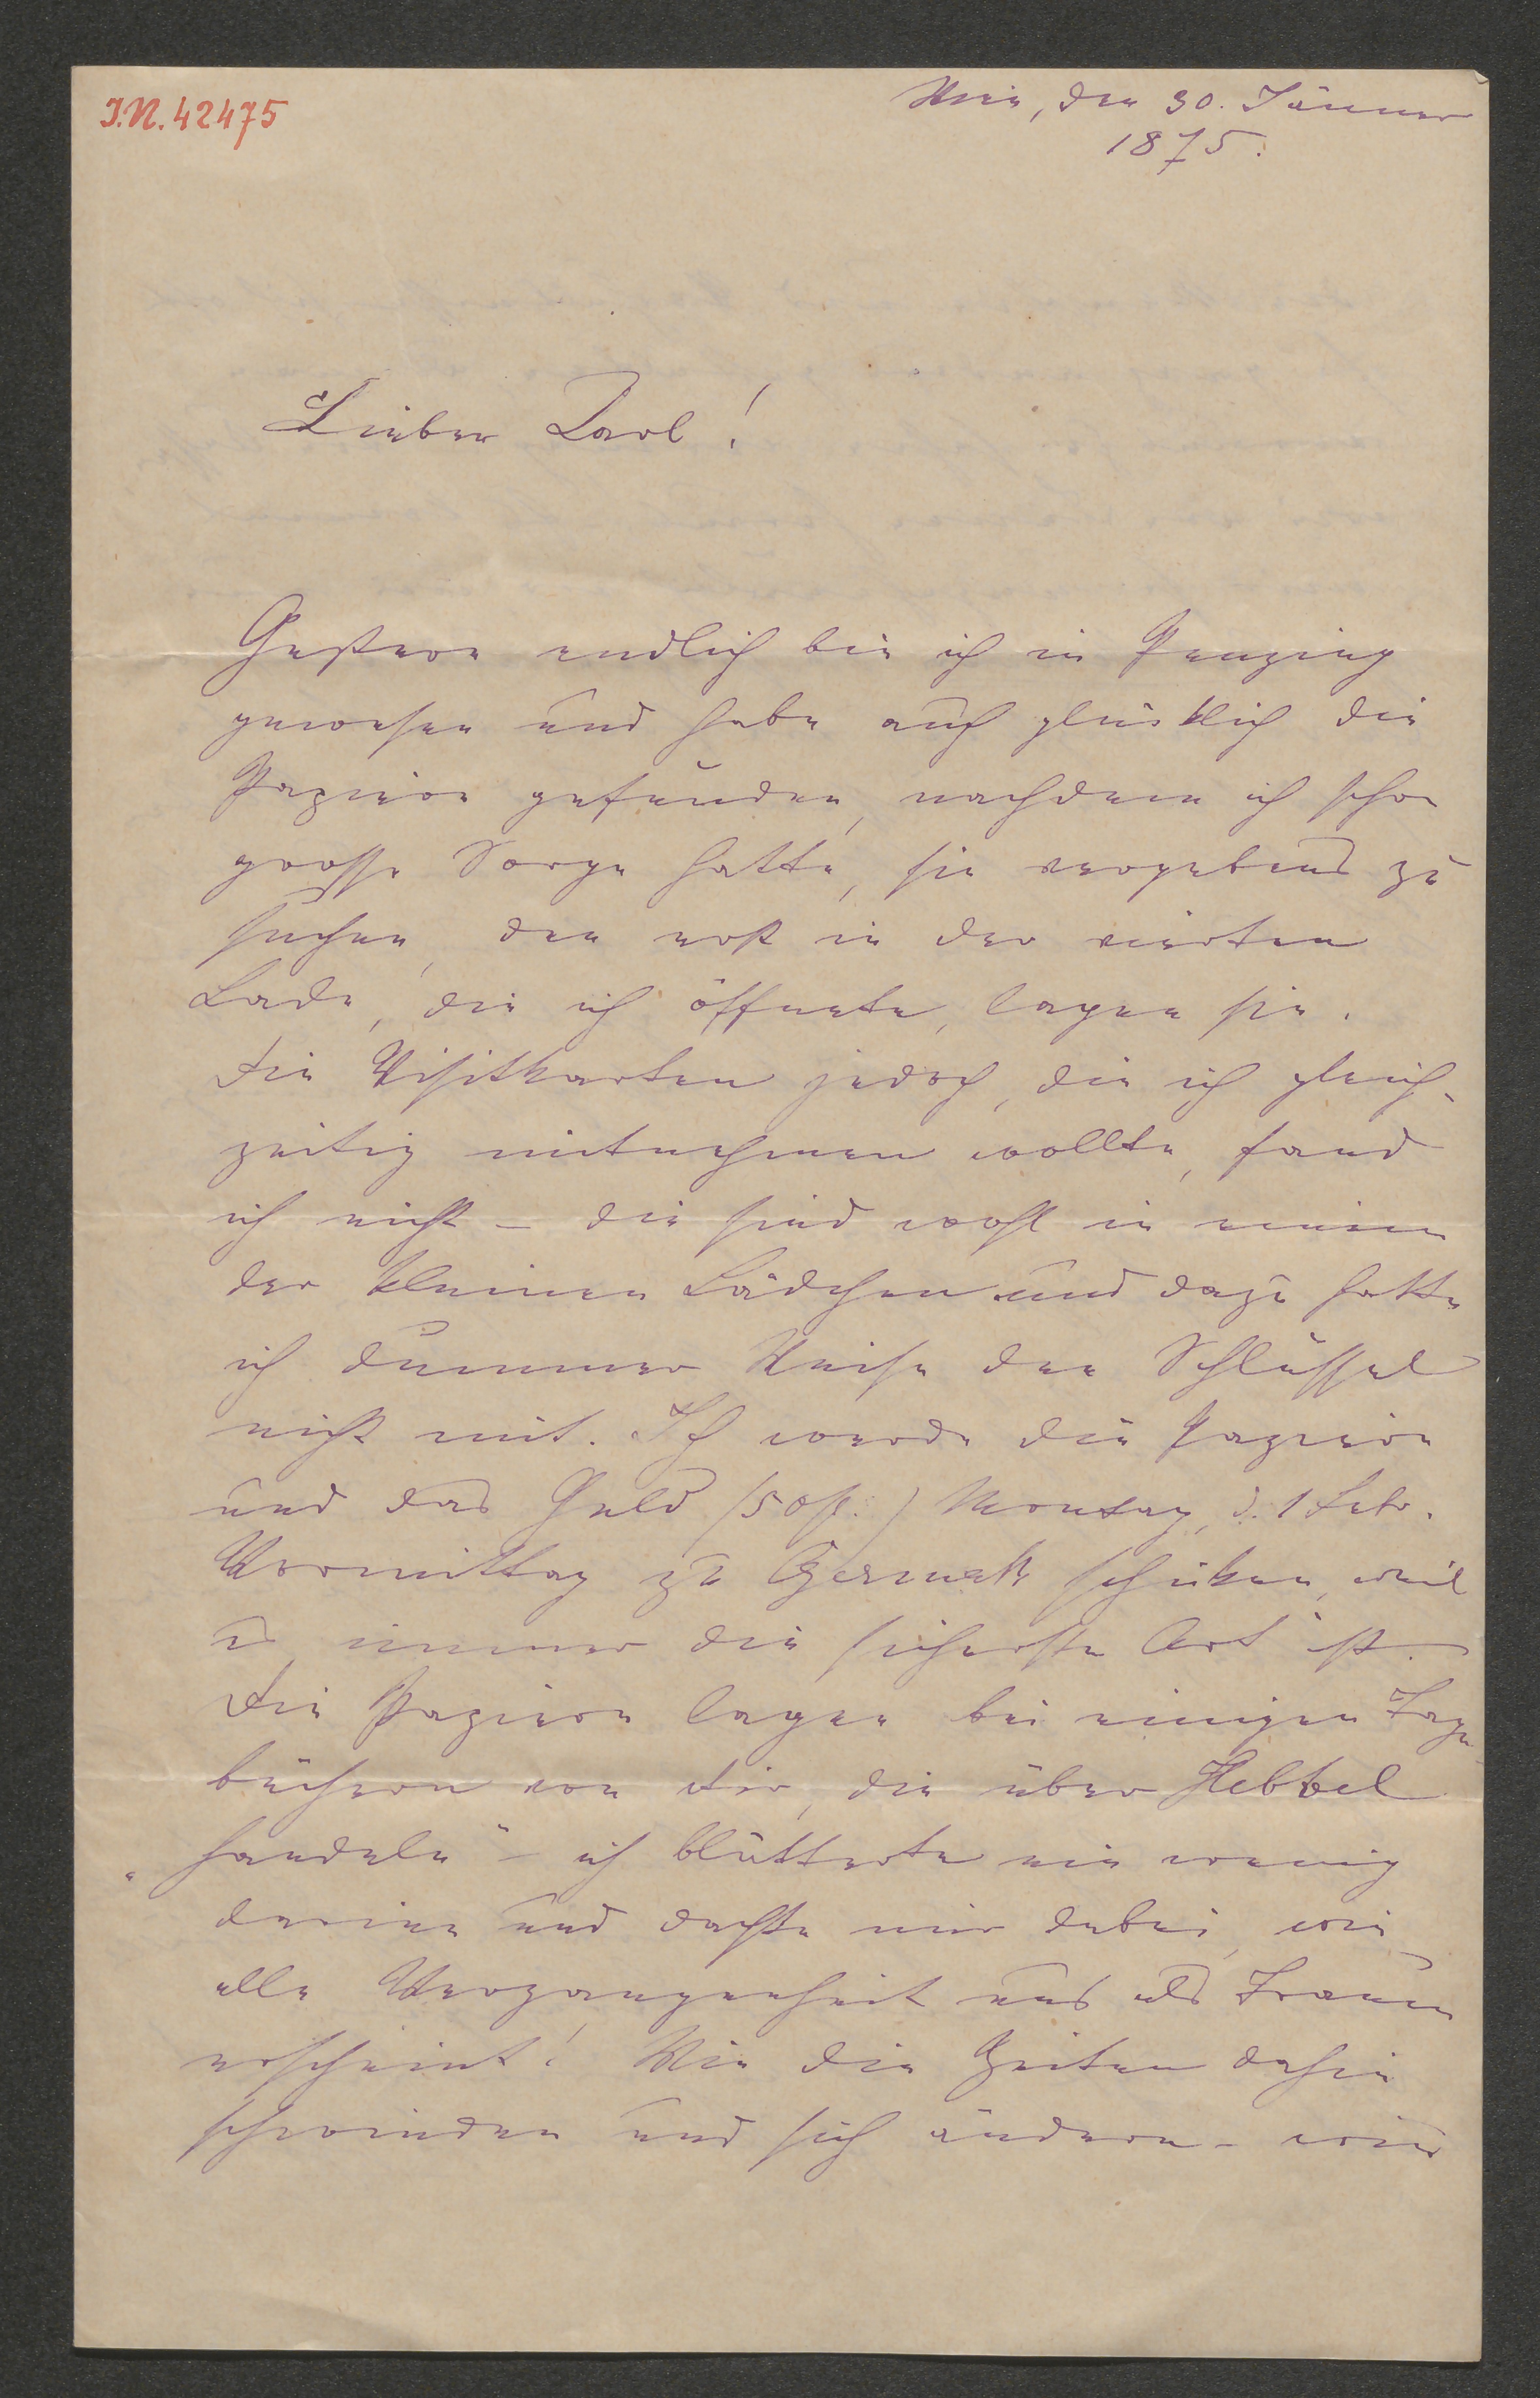 I.N. 42475
Wien, den 30. Jänner
1875.
Lieber Karl!
Gestern endlich bin ich in Penzing
gewesen und habe auch glücklich die
Papiere gefunden, nachdem ich schon
grosse Sorge hatte, sie vergebens zu
suchen, den erst in der vierten
Lade, die ich öffnete, lagen sie.
Die Visitkarten jedoch, die ich gleich-
zeitig mitnehmen wollte, fand
ich nicht – die sind wohl in einem
der kleinen Lädchen und dazu hatte
ich dummer Weise den Schlüssel
nicht mit. Ich werde die Papiere
und das Geld (50 fl.) Montag, d. 1 Febr.
Vormittag zu Czermak schicken, weil
es immer die sicherste Art ist.
Die Papiere lagen bei einigen Tage
büchern von Dir, die über Hebbel
„handeln" – ich blätterte ein wenig
darinen und dachte mir dabei, wie
alle Vergangenheit uns als Traum
erscheint! Wie die Zeiten dahin
schwinden und sich ändern – wir